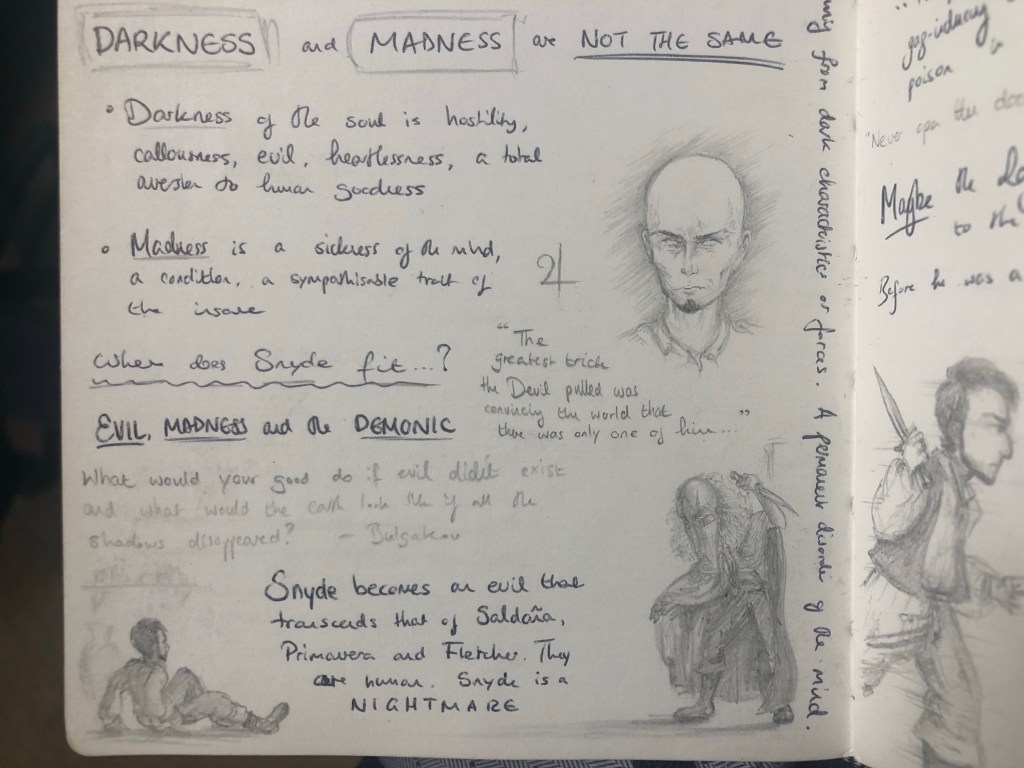 DARKNESS and MADNESS are NOT THE SAME
• Darkness of the soul is hostility,
callousness, evil, heartlessness, a total
aversion to human goodness
• Madness is a sickness of the mind,
a condition, a sympathisable trait of
the insane
Where does Snyde fit...?
"The
greatest trick
the Devil pulled was
convincing the world that
there was only one of him..."
EVIL, MADNESS and the DEMONIC
What would your good do if evil didn't exist
and what would the earth look like if all the
shadows disappeared? - Bulgakov
Snyde becomes an evil that
transcends that of Saldaña,
Primavera and Fletcher. They
are human. Snyde is a
NIGHTMARE
from dark characteristics or forces. A permanent disorder of the mind.
gag-inducing
poison
"Never open the
Maybe the
to the
Before he was a